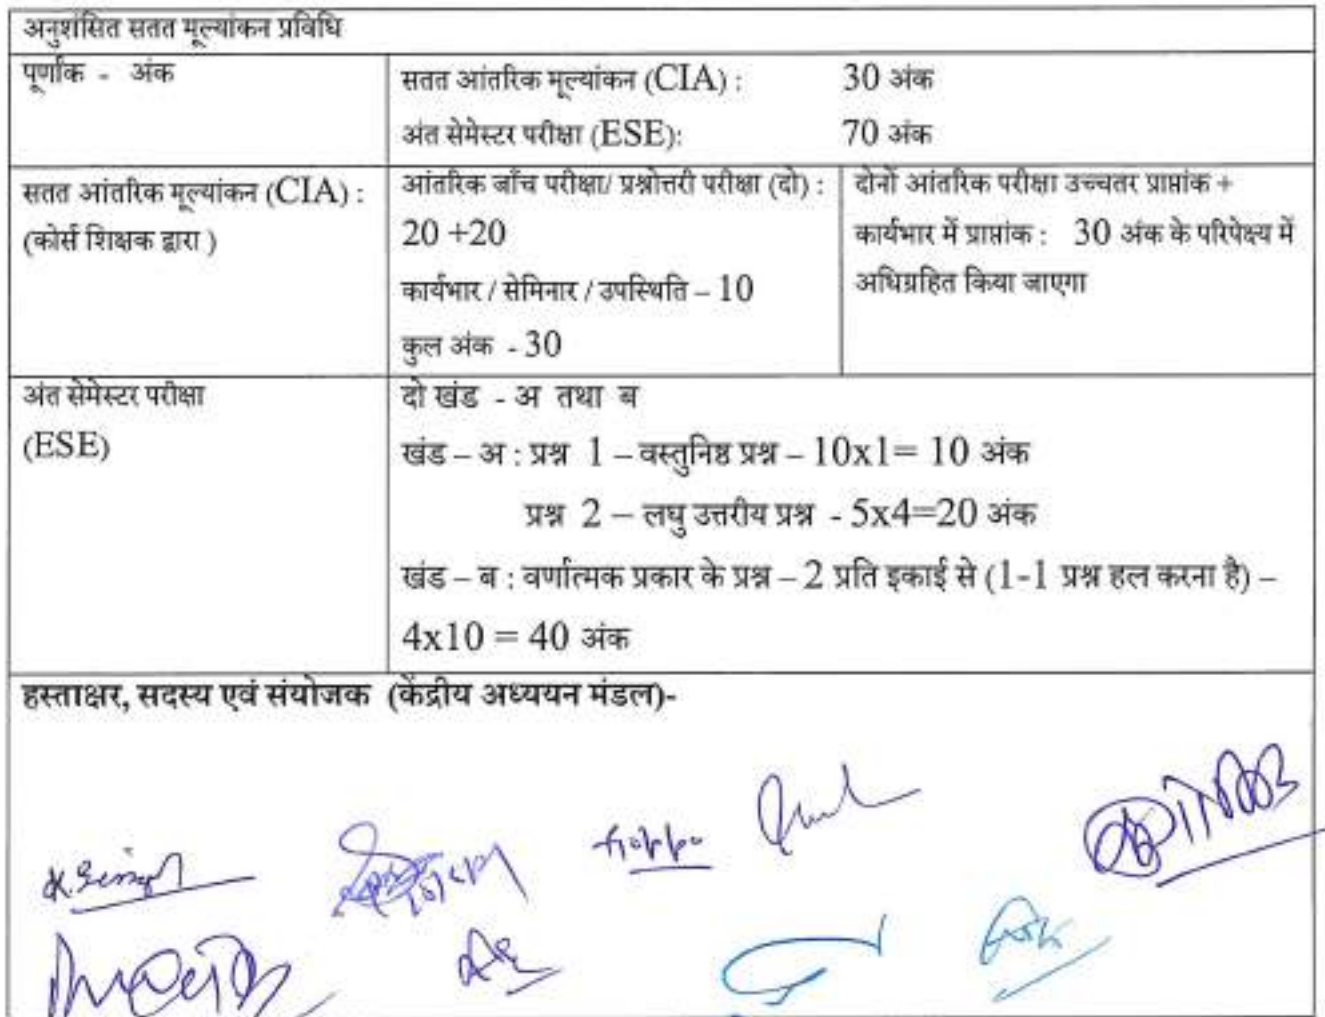 अनुशंसित सतत मूल्यांकन प्रविधि
पूर्णांक - अंक
सतत आंतरिक मूल्यांकन (CIA) : 30 अंक
अंत सेमेस्टर परीक्षा (ESE): 70 अंक
सतत आंतरिक मूल्यांकन (CIA) :
(कोर्स शिक्षक द्वारा )
आंतरिक जाँच परीक्षा/ प्रश्नोत्तरी परीक्षा (दो) :
20 +20
कार्यभार / सेमिनार / उपस्थिति – 10
कुल अंक - 30
दोनों आंतरिक परीक्षा उच्चतर प्राप्तांक +
कार्यभार में प्राप्तांक : 30 अंक के परिपेक्ष्य में
अधिग्रहित किया जाएगा
अंत सेमेस्टर परीक्षा
(ESE)
दो खंड - अ तथा ब
खंड – अ : प्रश्न 1 – वस्तुनिष्ठ प्रश्न – 10x1= 10 अंक
प्रश्न 2 – लघु उत्तरीय प्रश्न - 5x4=20 अंक
खंड – ब : वर्णात्मक प्रकार के प्रश्न – 2 प्रति इकाई से (1-1 प्रश्न हल करना है) –
4x10 = 40 अंक
हस्ताक्षर, सदस्य एवं संयोजक (केंद्रीय अध्ययन मंडल)-